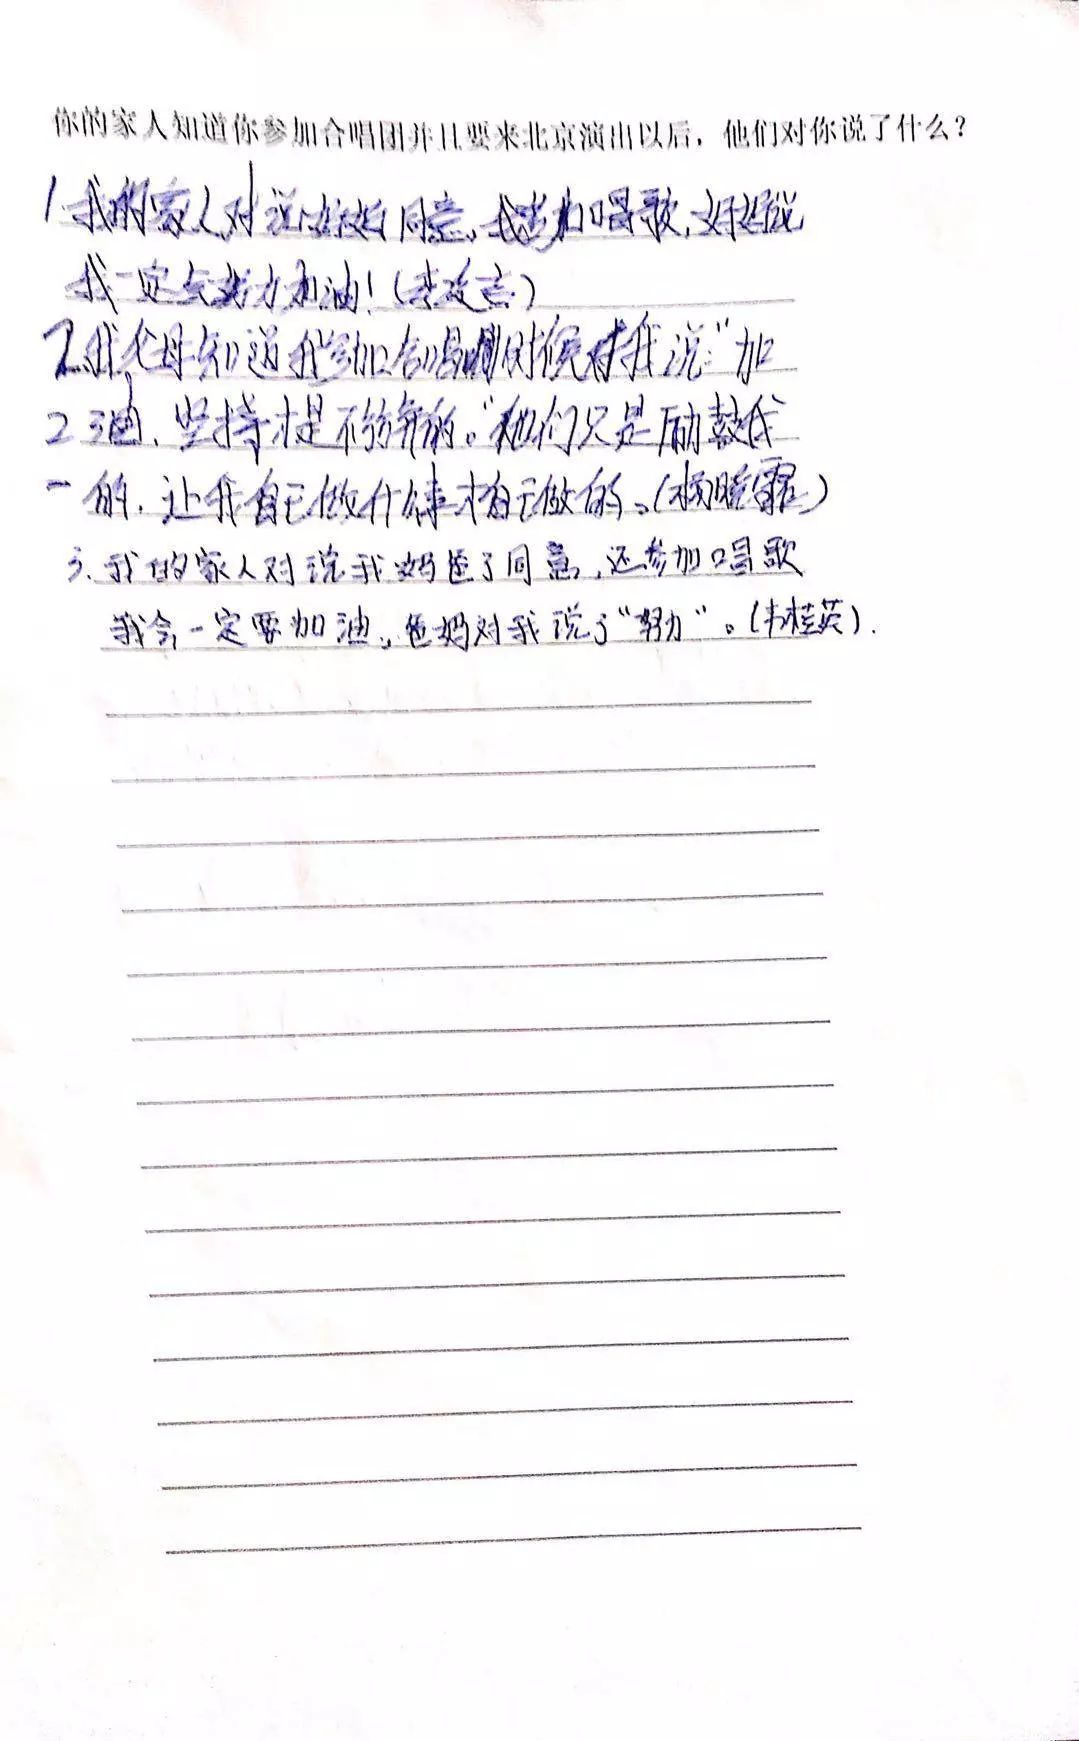 你的家人知道你参加合唱团并且要来北京演出以后，他们对你说了什么？
1.我的家人对说 同意。我参加唱歌，好好说
我一定 努力加油！（李 ）
2.我父母知道我参加合唱 时候对我说：“加
2 油，坚持才是不 的。”他们只是励鼓我
一的，让我自己做什 事才自己做的。（杨晓霞）
3.我的家人对说我妈爸了同意，还参加唱歌
我会一定要加油。爸妈对我说了“努力”。（韦桂英）.